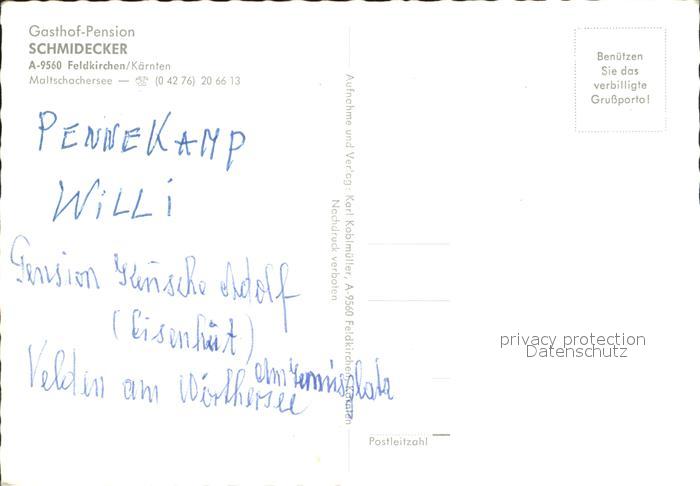 Gasthof-Pension
SCHMIDECKER
A-9560 Feldkirchen/Kärnten
Maltschachersee — ☏ (0 42 76) 20 66 13
PENNEKAMP
WiLLi
Pension Adolf
(Eisenhut)
Velden am Wörthersee
am Tennisplatz
Aufnahme und Verlag: Karl Koblmüller, A-9560 Feldkirchen/Kärnten
Nachdruck verboten
Benützen
Sie das
verbilligte
Grußporto!
privacy protection
Datenschutz
Postleitzahl